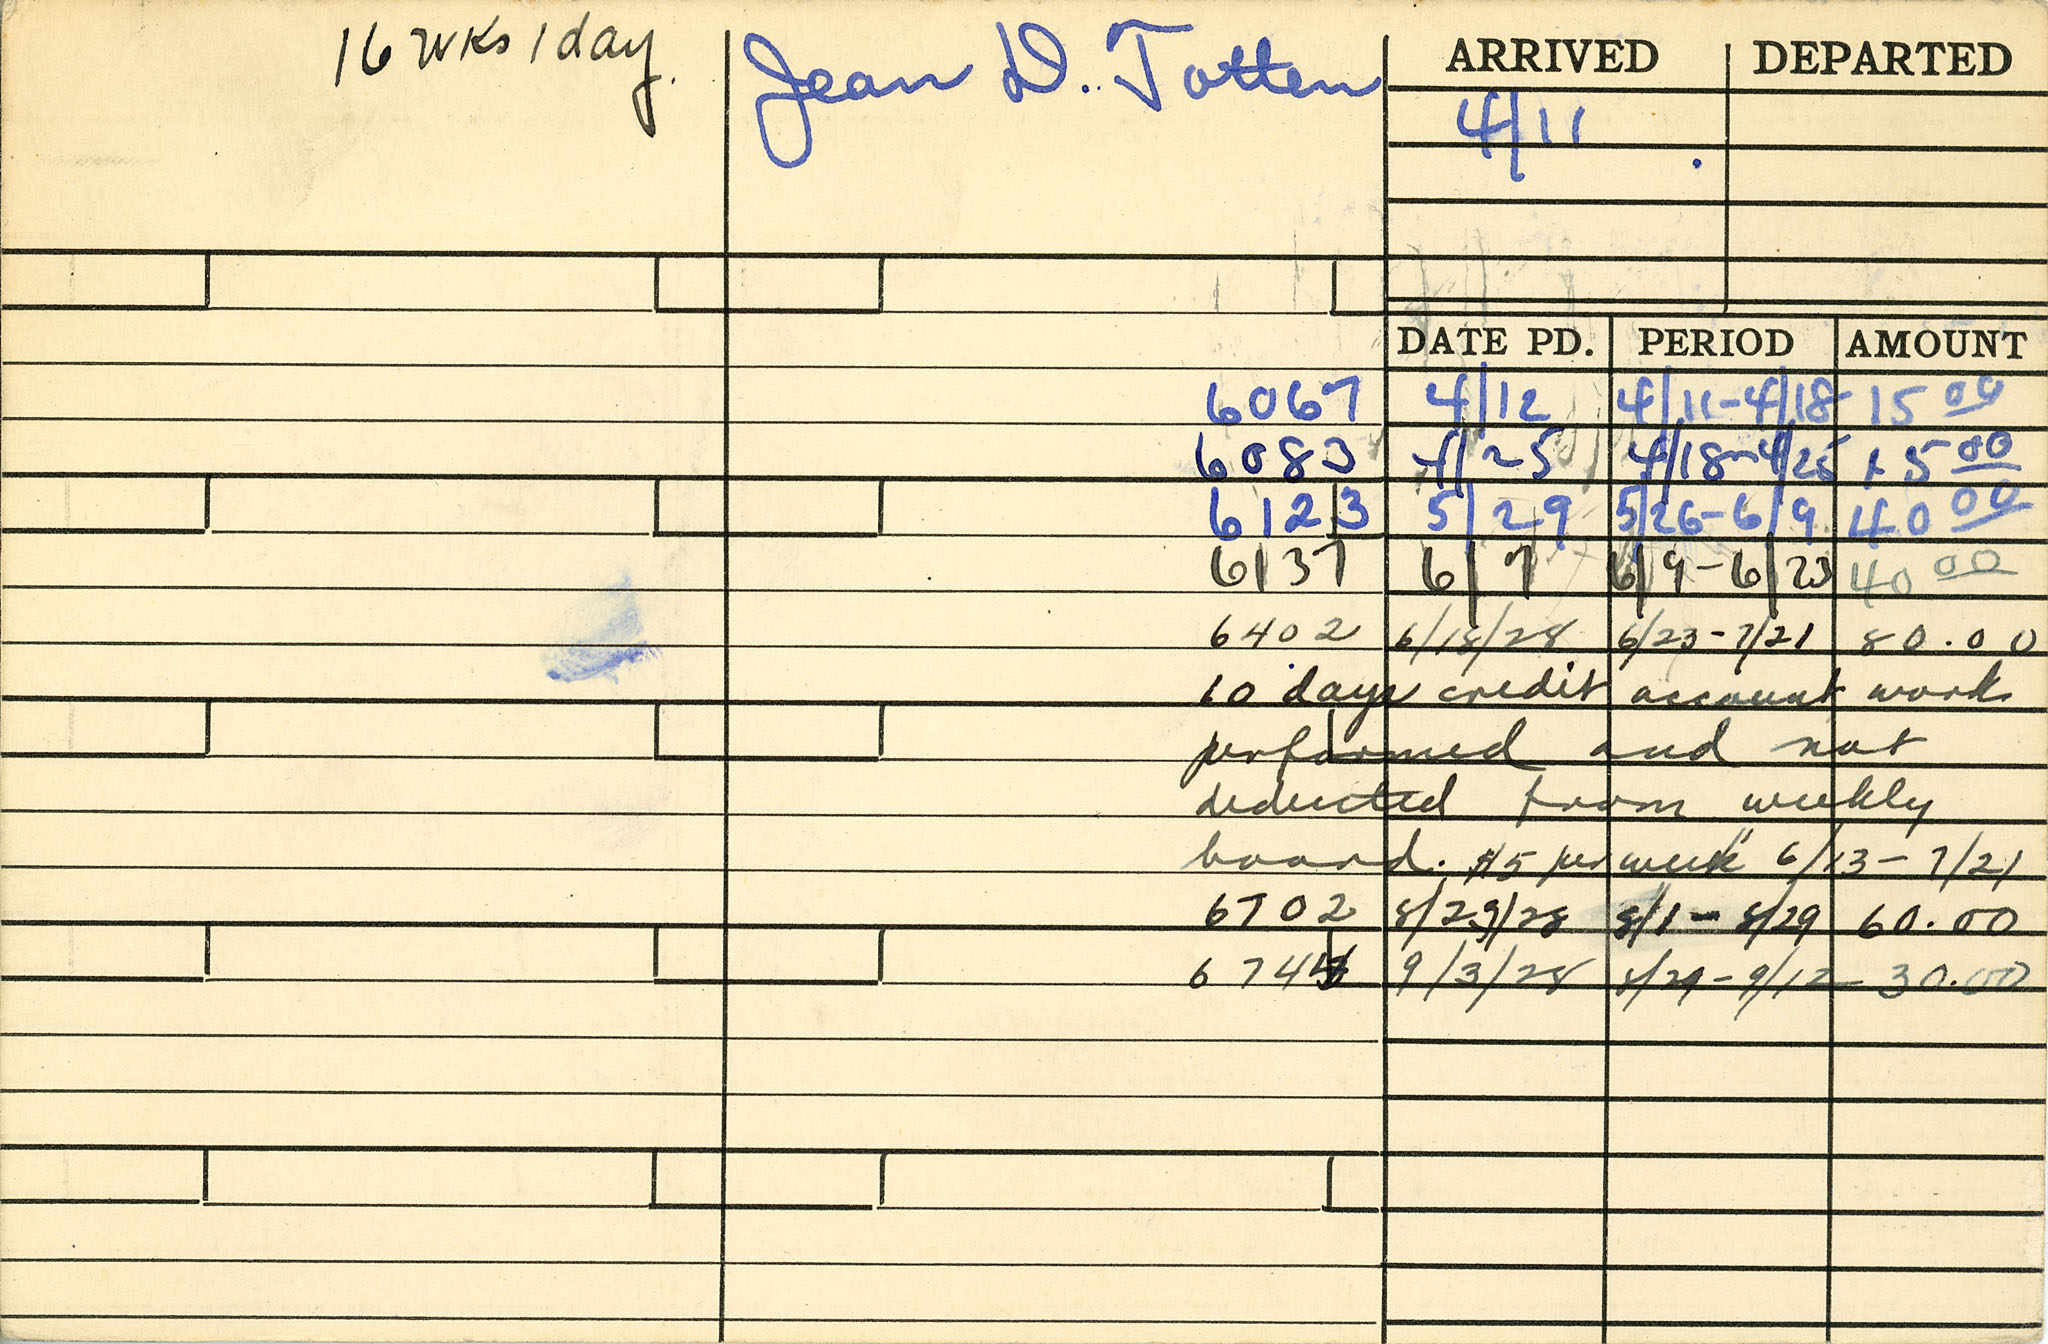 16 wks 1 day.
Jean D. Totten
ARRIVED DEPARTED
4/11
DATE PD. PERIOD AMOUNT
6067 4/12 4/11-4/18 15 00
6083 4/25 4/18-4/25 15 00
6123 5/29 5/26-6/9 40 00
6137 6/7 6/9-6/23 40 00
6402 6/18/28 6/23-7/21 80.00
10 days credit account work
performed and not
deducted from weekly
board. $5 per week 6/13-7/21
6702 8/29/28 8/1-8/29 60.00
9/3/28 8/29-9/12 30.00